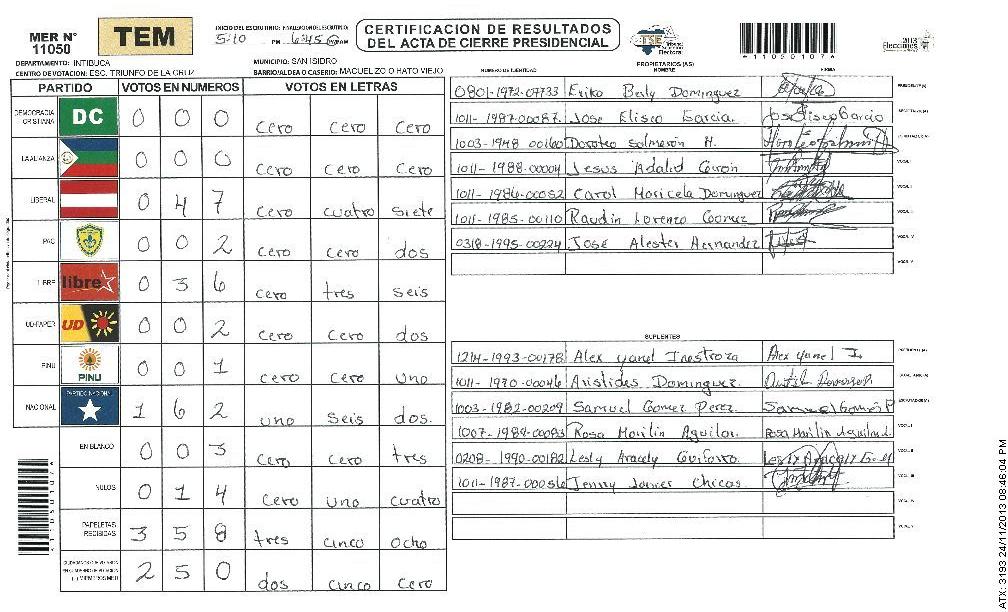 MER N° 11050
TEM
INICIO DEL ESCRUTINIO: FINALIZACION DEL ESCRUTINIO:
5:10 PM 6:45 PM
CERTIFICACION DE RESULTADOS
DEL ACTA DE CIERRE PRESIDENCIAL
TSE
Tribunal Supremo Electoral
*11050107*
2013
Elecciones
DEPARTAMENTO: INTIBUCA
MUNICIPIO: SAN ISIDRO
CENTRO DE VOTACION: ESC. TRIUNFO DE LA CRUZ
BARRIO/ALDEA O CASERIO: MACUELIZO O HATO VIEJO
PARTIDO VOTOS EN NUMEROS VOTOS EN LETRAS
DEMOCRACIA CRISTIANA DC 0 0 0 cero cero cero
LA ALIANZA 0 0 0 cero cero cero
LIBERAL 0 4 7 cero cuatro siete
PAC 0 0 2 cero cero dos
LIBRE libre 0 3 6 cero tres seis
UD-FAPER UD 0 0 2 cero cero dos
PINU PINU 0 0 1 cero cero uno
NACIONAL PARTIDO NACIONAL 1 6 2 uno seis dos
EN BLANCO 0 0 3 cero cero tres
NULOS 0 1 4 cero uno cuatro
PAPELETAS RECIBIDAS 3 5 8 tres cinco ocho
2 5 0 dos cinco cero
*11050107*
PROPIETARIOS (AS)
NUMERO DE IDENTIDAD NOMBRE FIRMA
0801-1972-07733 Erika Berly Dominguez PRESIDENTE (A)
1011-1987-00087 Jose Elisco Garcia Jose Elisco Garcia SECRETARIO (A)
1003-1948-00160 Doroteo Salmeron H. ESCRUTADOR (A)
1011-1988-00004 Jesus Adalid VOCAL I
1011-1986-00052 Carol Maricela Dominguez VOCAL II
1011-1985-00110 Raudin Lorenzo Gomez VOCAL III
0318-1995-00224 José Alester Hernandez VOCAL IV
VOCAL V
SUPLENTES
1214-1993-00178 Alex Yanel Inestroza Alex Yanel I. PRESIDENTE (A)
1011-1970-00046 Aristides Dominguez. SECRETARIO (A)
1003-1982-00209 Samuel Gomez Perez. Samuel Gomes P ESCRUTADOR (A)
1007-1989-00093 Rosa Marilin Aguilar. Rosa Marilin Aguilar VOCAL I
0208-1990-00182 Lesly Aracely Lesly Aracely VOCAL II
1011-1987-00056 Jenny Chicas VOCAL III
VOCAL IV
VOCAL V
ATX: 3193 24/11/2013 08:46:04 PM